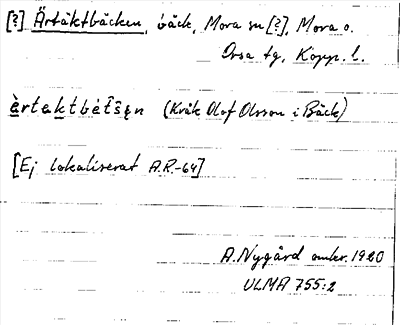 [?] Ärtäktbäcken, bäck, Mora sn [?], Mora o.
Orsa tg, Kopp. l.
ärtäktbétšęn (Kråk Olof Olsson i Bäck)
[Ej lokaliserat A.R.-64]
A. Nygård omkr. 1920
ULMA 755:2